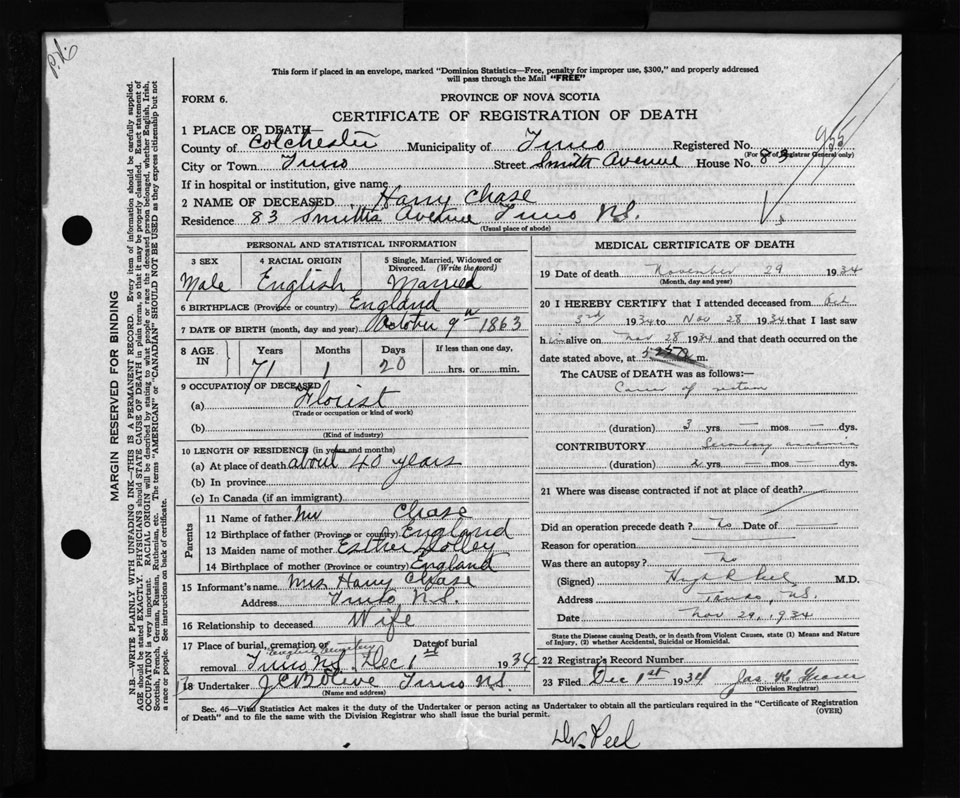 This form if placed in an envelope, marked "Dominion Statistics—Free, penalty for improper use, $300," and properly addressed
will pass through the Mail "FREE"
FORM 6. PROVINCE OF NOVA SCOTIA
CERTIFICATE OF REGISTRATION OF DEATH
1 PLACE OF DEATH—
County of Colchester Municipality of Truro Registered No. 955
(For use of Registrar General only)
City or Town Truro Street Smith Avenue House No. 83
If in hospital or institution, give name
2 NAME OF DECEASED Harry Chase
Residence 83 Smith Avenue Truro N.S.
(Usual place of abode)
PERSONAL AND STATISTICAL INFORMATION
3 SEX 4 RACIAL ORIGIN 5 Single, Married, Widowed or Divorced. (Write the word)
Male English Married
6 BIRTHPLACE (Province or country) England
7 DATE OF BIRTH (month, day and year) October 9th 1863
8 AGE IN Years Months Days If less than one day,
71 1 20 hrs. or min.
9 OCCUPATION OF DECEASED
(a) Florist
(Trade or occupation or kind of work)
(b)
(Kind of industry)
10 LENGTH OF RESIDENCE (in years and months)
(a) At place of death about 40 years
(b) In province
(c) In Canada (if an immigrant)
Parents
11 Name of father Chase
12 Birthplace of father (Province or country) England
13 Maiden name of mother Esther
14 Birthplace of mother (Province or country) England
15 Informant's name Mrs Harry Chase
Address Truro N.S.
16 Relationship to deceased Wife
17 Place of burial, cremation or Date of burial
removal Truro N.S. Dec 1st 1934
18 Undertaker J C B Olive Truro N.S.
(Name and address)
MEDICAL CERTIFICATE OF DEATH
19 Date of death November 29 1934
(Month, day and year)
20 I HEREBY CERTIFY that I attended deceased from Oct
3rd 1934 to Nov 28 1934 that I last saw
h im alive on Nov 28 1934 and that death occurred on the
date stated above, at m.
The CAUSE of DEATH was as follows:—
Cancer of rectum
(duration) 3 yrs. — mos — dys.
CONTRIBUTORY Secondary anaemia
(duration) 2 yrs. — mos. — dys.
21 Where was disease contracted if not at place of death?
Did an operation precede death? No Date of
Reason for operation
Was there an autopsy? No
(Signed) Peel M.D.
Address Truro, N.S.
Date Nov 29, 1934
State the Disease causing Death, or in death from Violent Causes, state (1) Means and Nature
of Injury, (2) whether Accidental, Suicidal or Homicidal.
22 Registrar's Record Number
23 Filed Dec 1st 1934 Jas K
(Division Registrar)
Sec. 46—Vital Statistics Act makes it the duty of the Undertaker or person acting as Undertaker to obtain all the particulars required in the "Certificate of Registration
of Death" and to file the same with the Division Registrar who shall issue the burial permit. (OVER)
Dr. Peel
MARGIN RESERVED FOR BINDING
N.B.—WRITE PLAINLY WITH UNFADING INK—THIS IS A PERMANENT RECORD. Every item of information should be carefully supplied.
AGE should be stated EXACTLY. PHYSICIANS should STATE CAUSE OF DEATH in plain terms, so that it may be properly classified. Exact statement of
OCCUPATION is very important. RACIAL ORIGIN will be described by stating to what people or race the deceased person belonged, whether English, Irish,
Scottish, French, German, Russian, Ruthenian, etc. The terms "AMERICAN" or "CANADIAN" SHOULD NOT BE USED as they express citizenship but not
a race or people. See instructions on back of certificate.